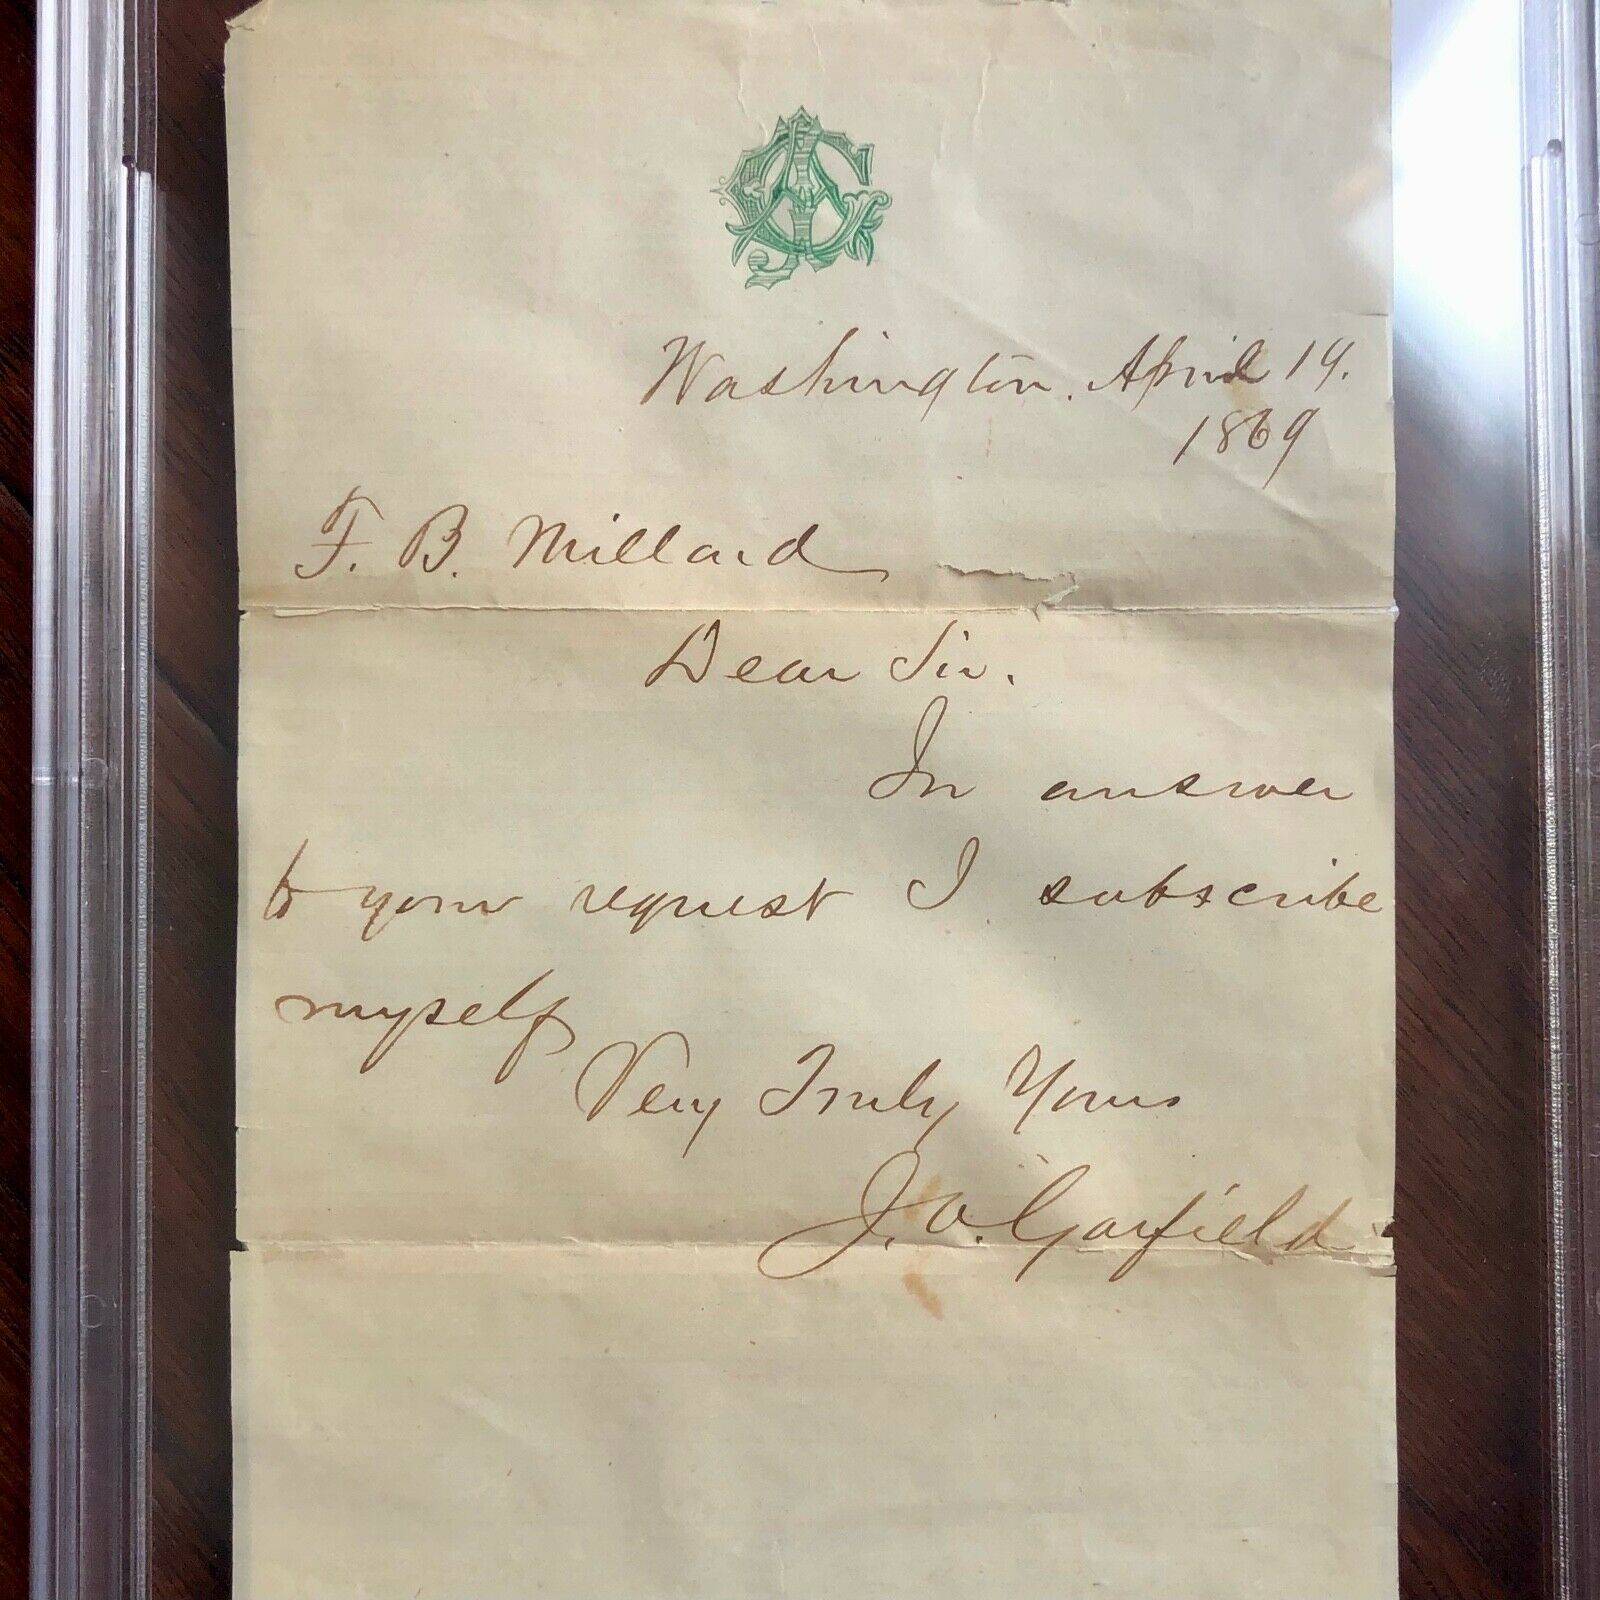 Washington. April 19.
1869
F. B. Millard
Dear Sir.
In answer
to your request I subscribe
myself
Very Truly Yours
J. A. Garfield